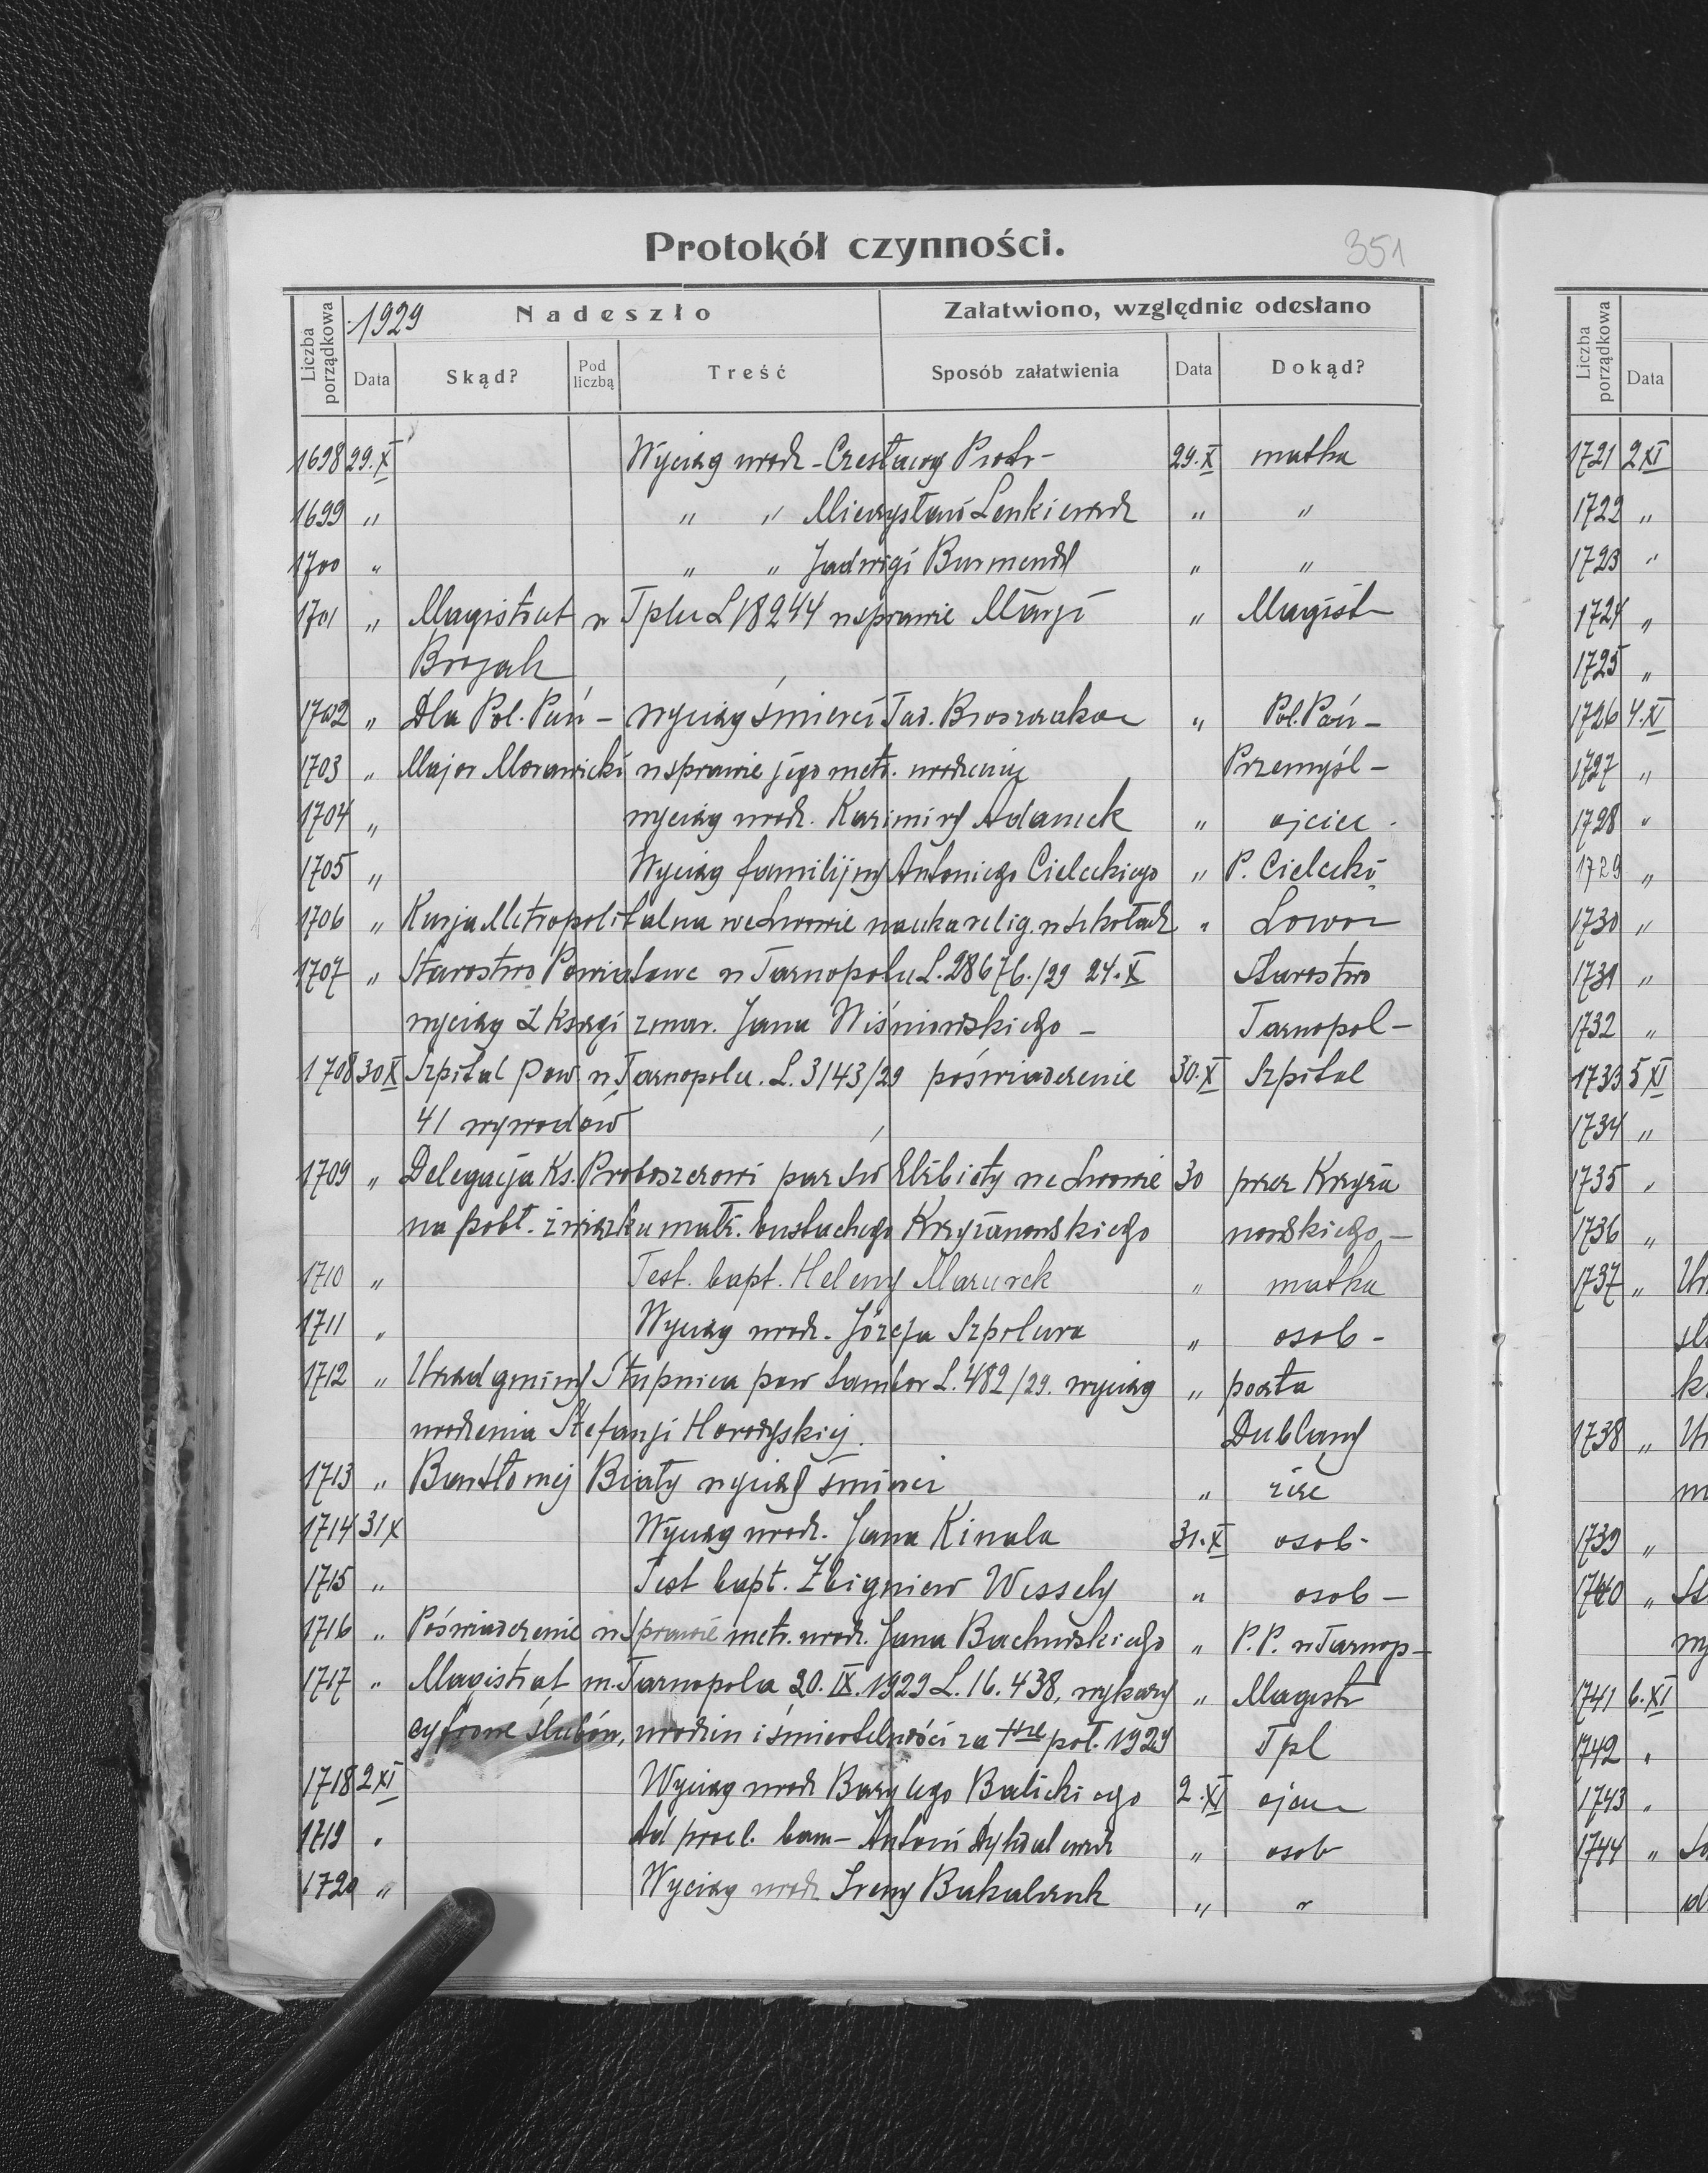 Protokół czynności.
351
Liczba porządkowa
1929
Nadeszło
Załatwiono, względnie odesłano
Data Skąd? Pod liczbą Treść Sposób załatwienia Data Dokąd?
1698 29.X Wyciąg urodz - Czesławy Piotr- 29.X matka
1699 " " " Mieczysław Lenkiewicz " "
1700 " " " Jadwigi Burmendy " "
1701 " Magistrat w Tplu L 18244 w sprawie Marji " Magist-
Brozak
1702 " Dla Pol. Pań - wyciąg śmierci Tad. " Pol. Pań -
1703 " Major Morawicki w sprawie jego metr. urodzenia Przemyśl -
1704 " wyciąg urodz. Kazimiry Adamek " ojciec -
1705 " Wyciąg familijny Antoniego Cieleckiego " P. Cielecki
1706 " Kurja Metropolitalna we Lwowie nauka relig. w szkołach " Lwow
1707 " Starostwo Powiatowe w Tarnopolu L. 28676./29 24.X Starostwo
wyciąg z Księgi zmar. Jana Wiśniowskiego - Tarnopol -
1708 30X Szpital Pow w Tarnopolu. L. 3143/29 poświadczenie 30.X Szpital
41 wywodów
1709 " Delegacja Ks. Proboszczowi par św Elżbiety we Lwowie 30 przez Krzyża
na pobł. związku małż. Eustachego Krzyżanowskiego nowskiego -
1710 " Test. bapt. Heleny Mazurek " matka
1711 " Wyciąg urodz. Józefa Szpolura " osob -
1712 " Urząd gminy Stupnica pow Sambor L. 482/29. wyciąg " poczta
urodzenia Stefanji Horodyskiej. Dublany
1713 " Bartłomiej Biały wyciąg śmierci "
1714 31X Wyciąg urodz. Jana Kinala 31.X osob -
1715 " Test bapt. Zbigniew Wessely " osob -
1716 " Poświadczenie w sprawie metr. urodz. Jana " P.P. w Tarnop -
1717 " Magistrat m. Tarnopola 20.IX.1929 L. 16.438, wykazy " Magistr
cyfrowe ślubów, urodzin i śmiertelności za poł. 1929 Tpl
1718 2XI Wyciąg urodz Bazylego Balickiego 2.XI ojciec
1719 " Ad procl. ban - Antoni " osob
1720 " Wyciąg urodz Ireny " "
Liczba porządkowa
Data
1721 2XI
1722 "
1723 "
1724 "
1725 "
1726 4.XI
1727 "
1728 "
1729 "
1730 "
1731 "
1732 "
1733 5XI
1734 "
1735 "
1736 "
1737 "
1738 "
1739 "
1740 "
1741 6.XI
1742 "
1743 "
1744 "